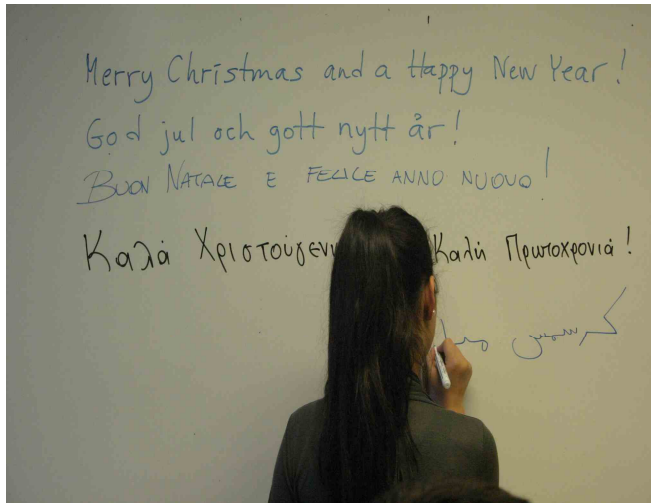 Merry Christmas and a Happy New Year!
God jul och gott nytt år!
BUON NATALE E FELICE ANNO NUOVO!
Καλά Χριστούγενν Καλή Πρωτοχρονιά!
کرسمس